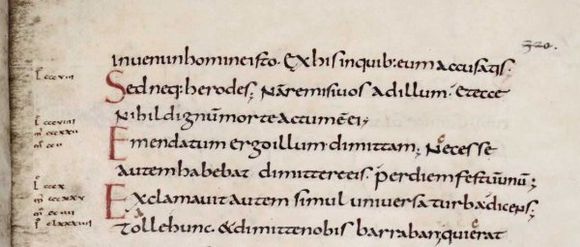 320.
invenio in homine isto. Ex his in quib: eum accusatis.
l cccviii
Sed neq: herodes; Nā remisi vos ad illum. Et ecce
Nihil dignū morte actum ē ei;
l cccviiii
Emendatum ergo illum dimittam; Necesse
autem habebat dimittere eis. per diem festū unū;
l cccx
Exclamavit autem simul universa turba dicens;
Tolle hunc. & dimitte nobis barraban; qui erat